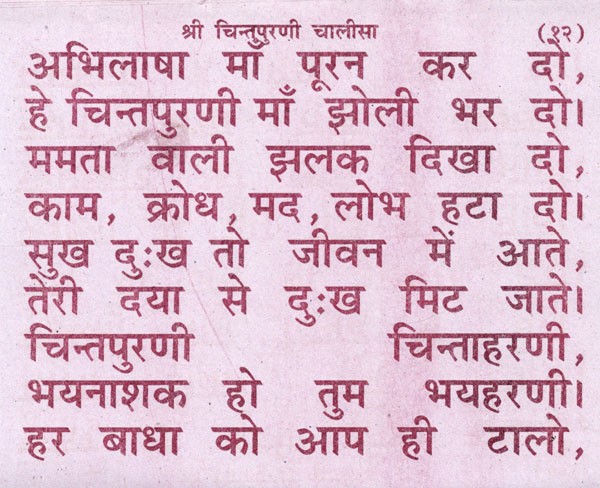 श्री चिन्तपुरणी चालीसा (१२)
अभिलाषा माँ पूरन कर दो,
हे चिन्तपुरणी माँ झोली भर दो।
ममता वाली झलक दिखा दो,
काम, क्रोध, मद, लोभ हटा दो।
सुख दुःख तो जीवन में आते,
तेरी दया से दुःख मिट जाते।
चिन्तपुरणी चिन्ताहरणी,
भयनाशक हो तुम भयहरणी।
हर बाधा को आप ही टालो,